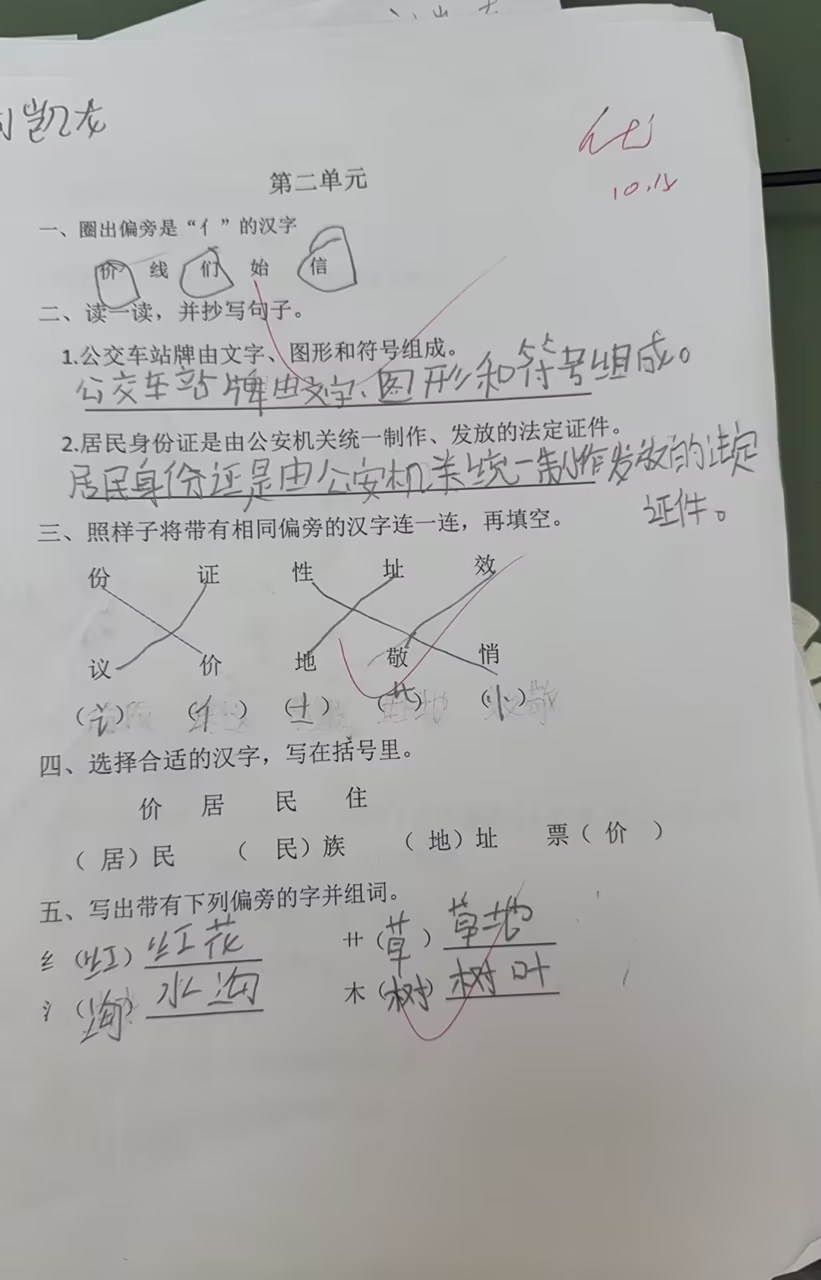 凯龙
优
10.15
第二单元
一、圈出偏旁是“亻”的汉字
价 线 们 始 信
二、读一读，并抄写句子。
1.公交车站牌由文字、图形和符号组成。
公交车站牌由文字、图形和符号组成。
2.居民身份证是由公安机关统一制作、发放的法定证件。
居民身份证是由公安机关统一制作发放的法定
证件。
三、照样子将带有相同偏旁的汉字连一连，再填空。
份 证 性 址 效
议 价 地 敬 悄
（讠） （亻） （土） （） （忄）
四、选择合适的汉字，写在括号里。
价 居 民 住
（ 居）民 （ 民）族 （ 地）址 票（ 价 ）
五、写出带有下列偏旁的字并组词。
纟（红）红花 艹（草）草地
氵（海）水海 木（树）树叶